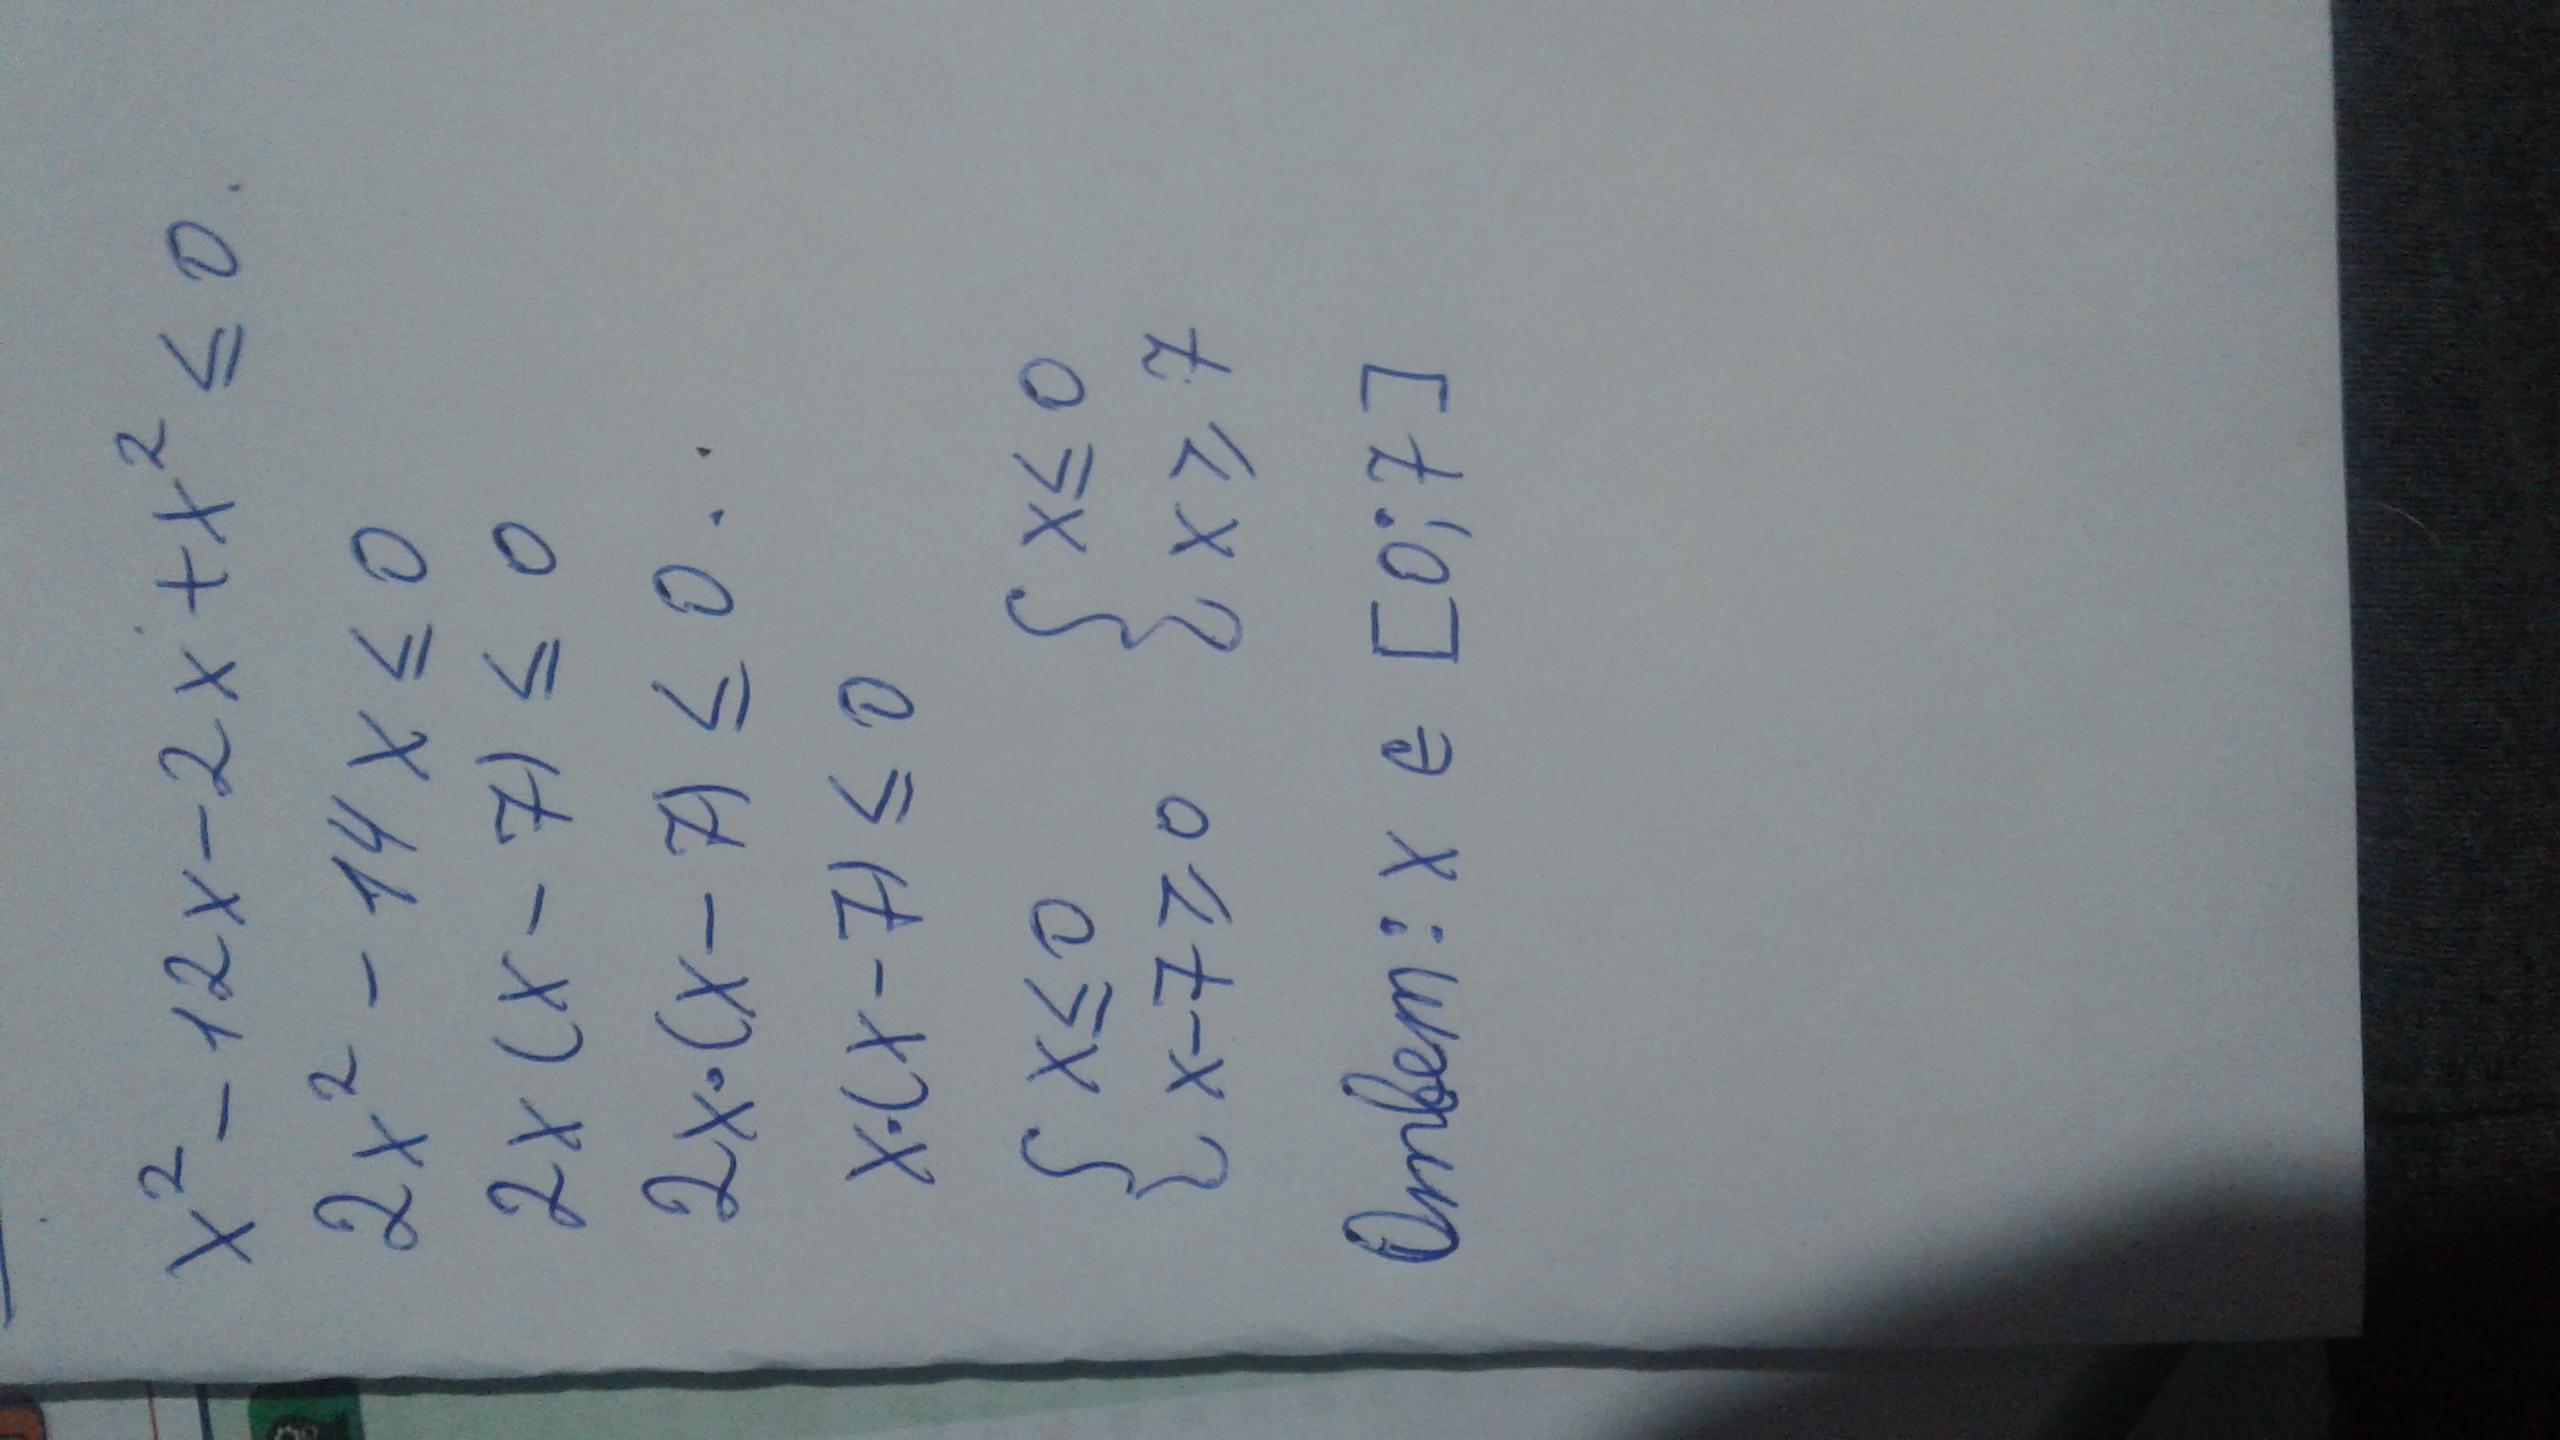 x² - 12x - 2x + x² ≤ 0.
2x² - 14x ≤ 0
2x (x - 7) ≤ 0
2x·(x - 7) ≤ 0..
x·(x - 7) ≤ 0
{ x ≤ 0 { x ≤ 0
{ x - 7 ≥ 0 { x ≥ 7
Ответ: x e [0; 7]